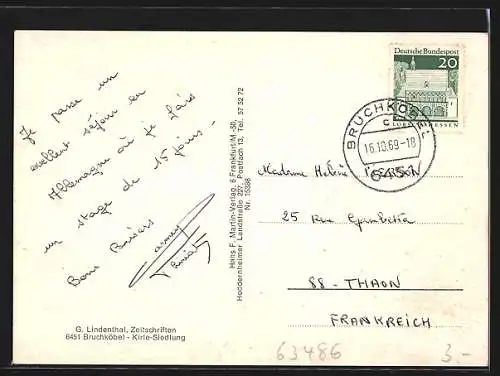 Je passe un
excellent séjour en
Allemagne où je fais
un stage de 15 jours -
Bons Baisers
G. Lindenthal, Zeitschriften
6451 Bruchköbel - Kirle-Siedlung
Hans F. Martin-Verlag, 6 Frankfurt/M.-50,
Heddernheimer Landstraße 227, Postfach 13, Tel. 57 52 72
Nr. 15338
Deutsche Bundespost
20
LORSCH HESSEN
BRUCHKÖBEL
c
16.10.69-18
6451
Madame Hélène
25 Rue Gambetta
88 - THAON
FRANKREICH
63486
3.-